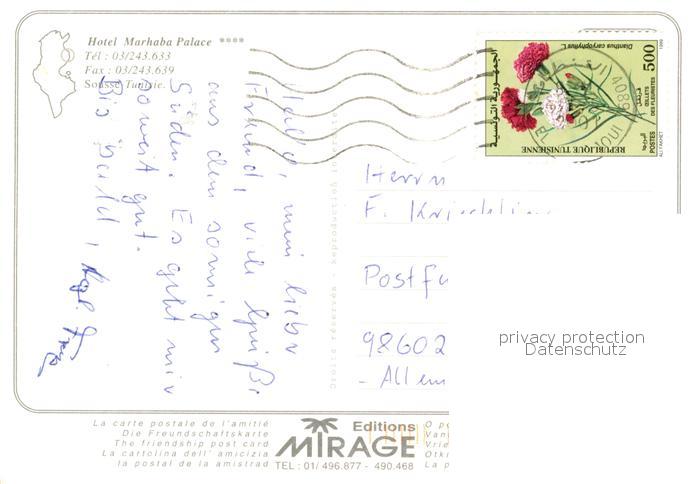 Hotel Marhaba Palace ****
Tél : 03/243.633
Fax : 03/243.639
Sousse Tunisie.
Hallo, mein lieber
Freund, viele Grüße
aus dem sonnigen
Süden. Es geht mir
soweit gut.
Bis bald,
Droits réservés - Reproduction interdite
Dianthus caryophyllus L.
1999
500
الجمهورية التونسية
ŒILLETS
DES FLEURISTES
قرنفل
POSTES
البريد
REPUBLIQUE TUNISIENNE
ALI FAKHET
Herrn
F.
Postfa
98602
- Allem
privacy protection
Datenschutz
La carte postale de l'amitié
Die Freundschaftskarte
The friendship post card
La cartolina dell' amicizia
la postal de la amistad
Editions
MIRAGE
TEL : 01/ 496.877 - 490.468
O po
Van
Vrie
Otkr
La p